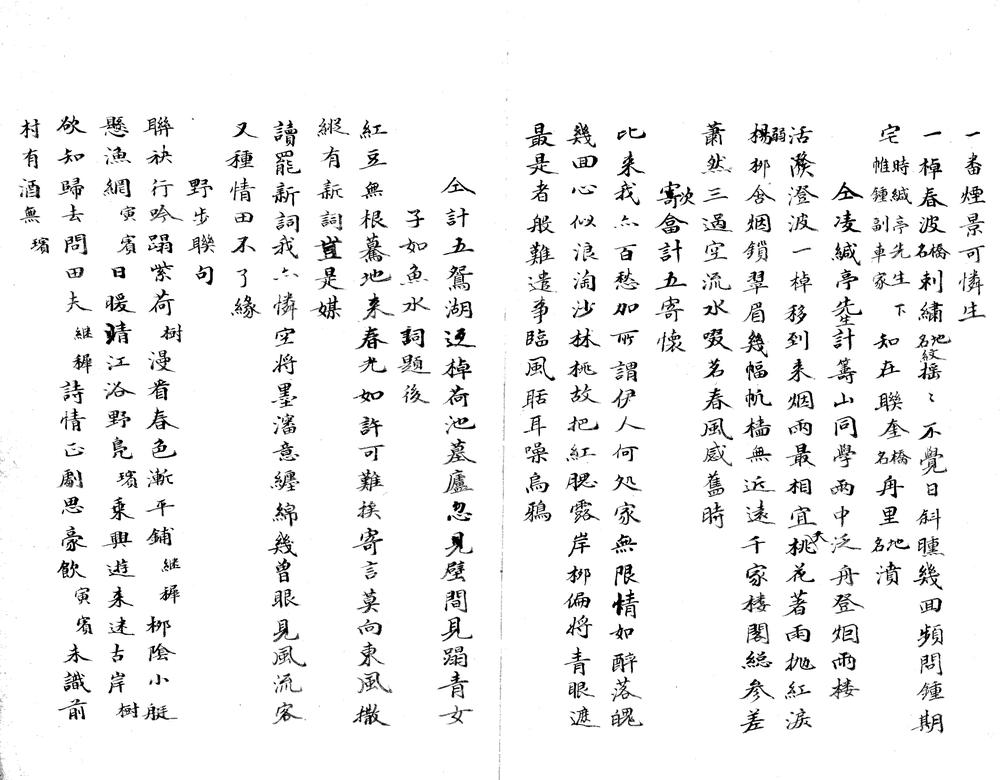 一番煙景可憐生
一棹春波橋名刺繡地名紋搖〻不覺日斜曛幾回頻問鍾期
宅時緘亭先生下帷鍾副車家知在聯奎橋名舟里地名濆
仝凌緘亭先生計籌山同學雨中泛舟登烟雨楼
活潑澄波一棹移到来烟雨最相宜桃花著雨抛紅淚
弱楊栁含烟鎖翠眉幾幅帆檣無近遠千家楼閣総參差
蕭然三過空流水啜茗春風感舊時
次會計五寄懷
此来我亦百愁加所謂伊人何処家無限情如醉落魄
幾回心似浪淘沙林桃故把紅腮露岸栁偏将青眼遮
最是者般難遣事臨風聒耳噪烏鴉
仝計五鴛湖返棹荷池墓廬忽見壁間見蹋青女
子如魚水詞題後
紅豆無根驀地来春光如許可難挨寄言莫向東風撒
縱有新詞豈是媒
讀罷新詞我亦憐空将墨瀋意纏綿幾曾眼見風流客
又種情田不了緣
野步聯句
聯袂行吟蹋紫荷樹漫看春色漸平鋪継穉栁陰小艇
懸漁網寅賓日暖晴江浴野凫璸乗興遊来迷古岸樹
欲知歸去問田夫継穉詩情正劇思豪飲寅賓未識前
村有酒無璸